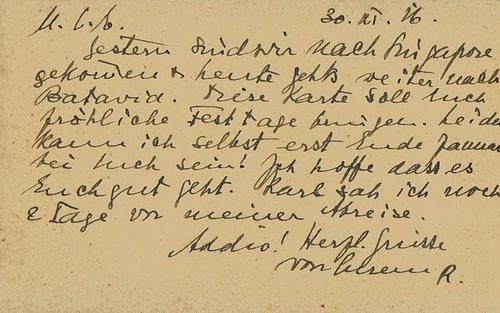 M. l. b. 30. XI. 26.
Gestern sind wir nach Singapore
gekomen & heute gehts weiter nach
Batavia. Diese Karte soll Euch
fröhliche Festtage bringen. Leider
kann ich selbst erst Ende Januar
bei Euch sein! Ich hoffe dass es
Euch gut geht. Karl sah ich noch
2 Tage vor meiner Abreise.
Addio! Herzl. Grüsse
von Eurem R.